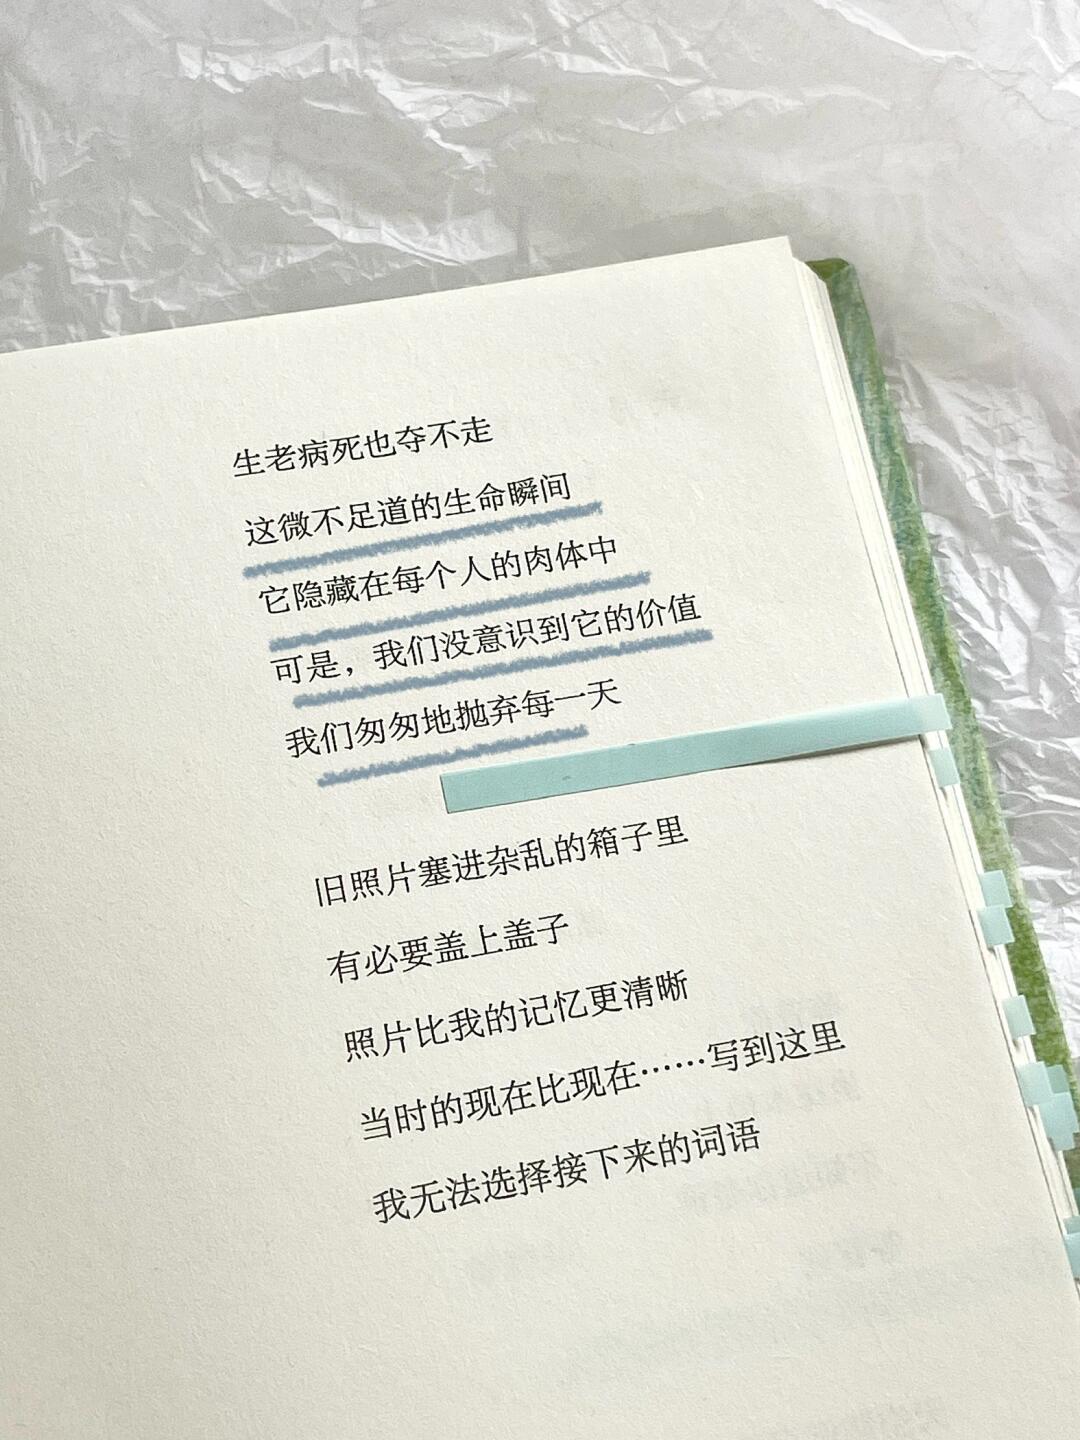 生老病死也夺不走
这微不足道的生命瞬间
它隐藏在每个人的肉体中
可是，我们没意识到它的价值
我们匆匆地抛弃每一天
旧照片塞进杂乱的箱子里
有必要盖上盖子
照片比我的记忆更清晰
当时的现在比现在……写到这里
我无法选择接下来的词语